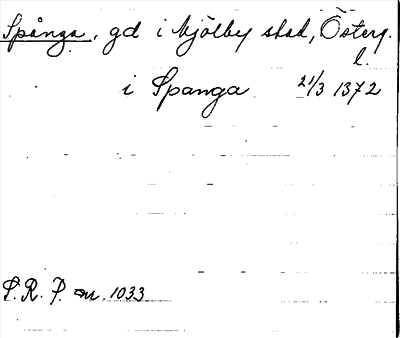 Spånga, gd i Mjölby stad, Österg.
l.
i Spanga 21/3 1372
S. R. P. nr. 1033